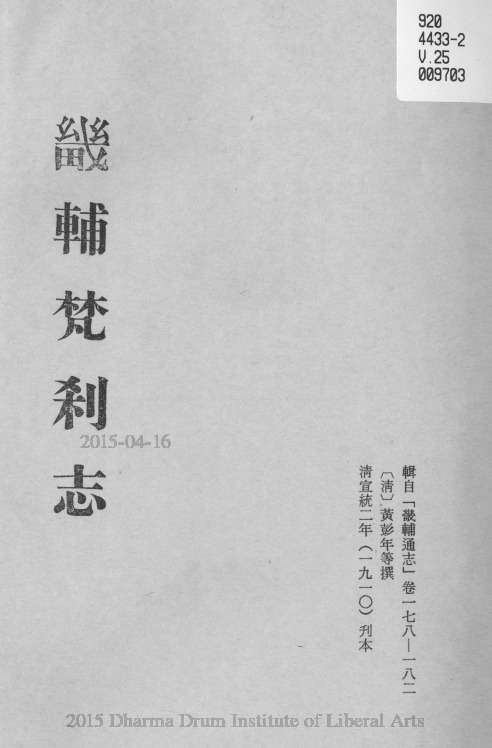 920
4433-2
V.25
009703
輯自「畿輔通志」卷一七八—一八二
〔清〕黃彭年等撰
清宣統二年（一九一〇）刊本
畿輔梵刹志
2015-04-16
2015 Dharma Drum Institute of Liberal Arts